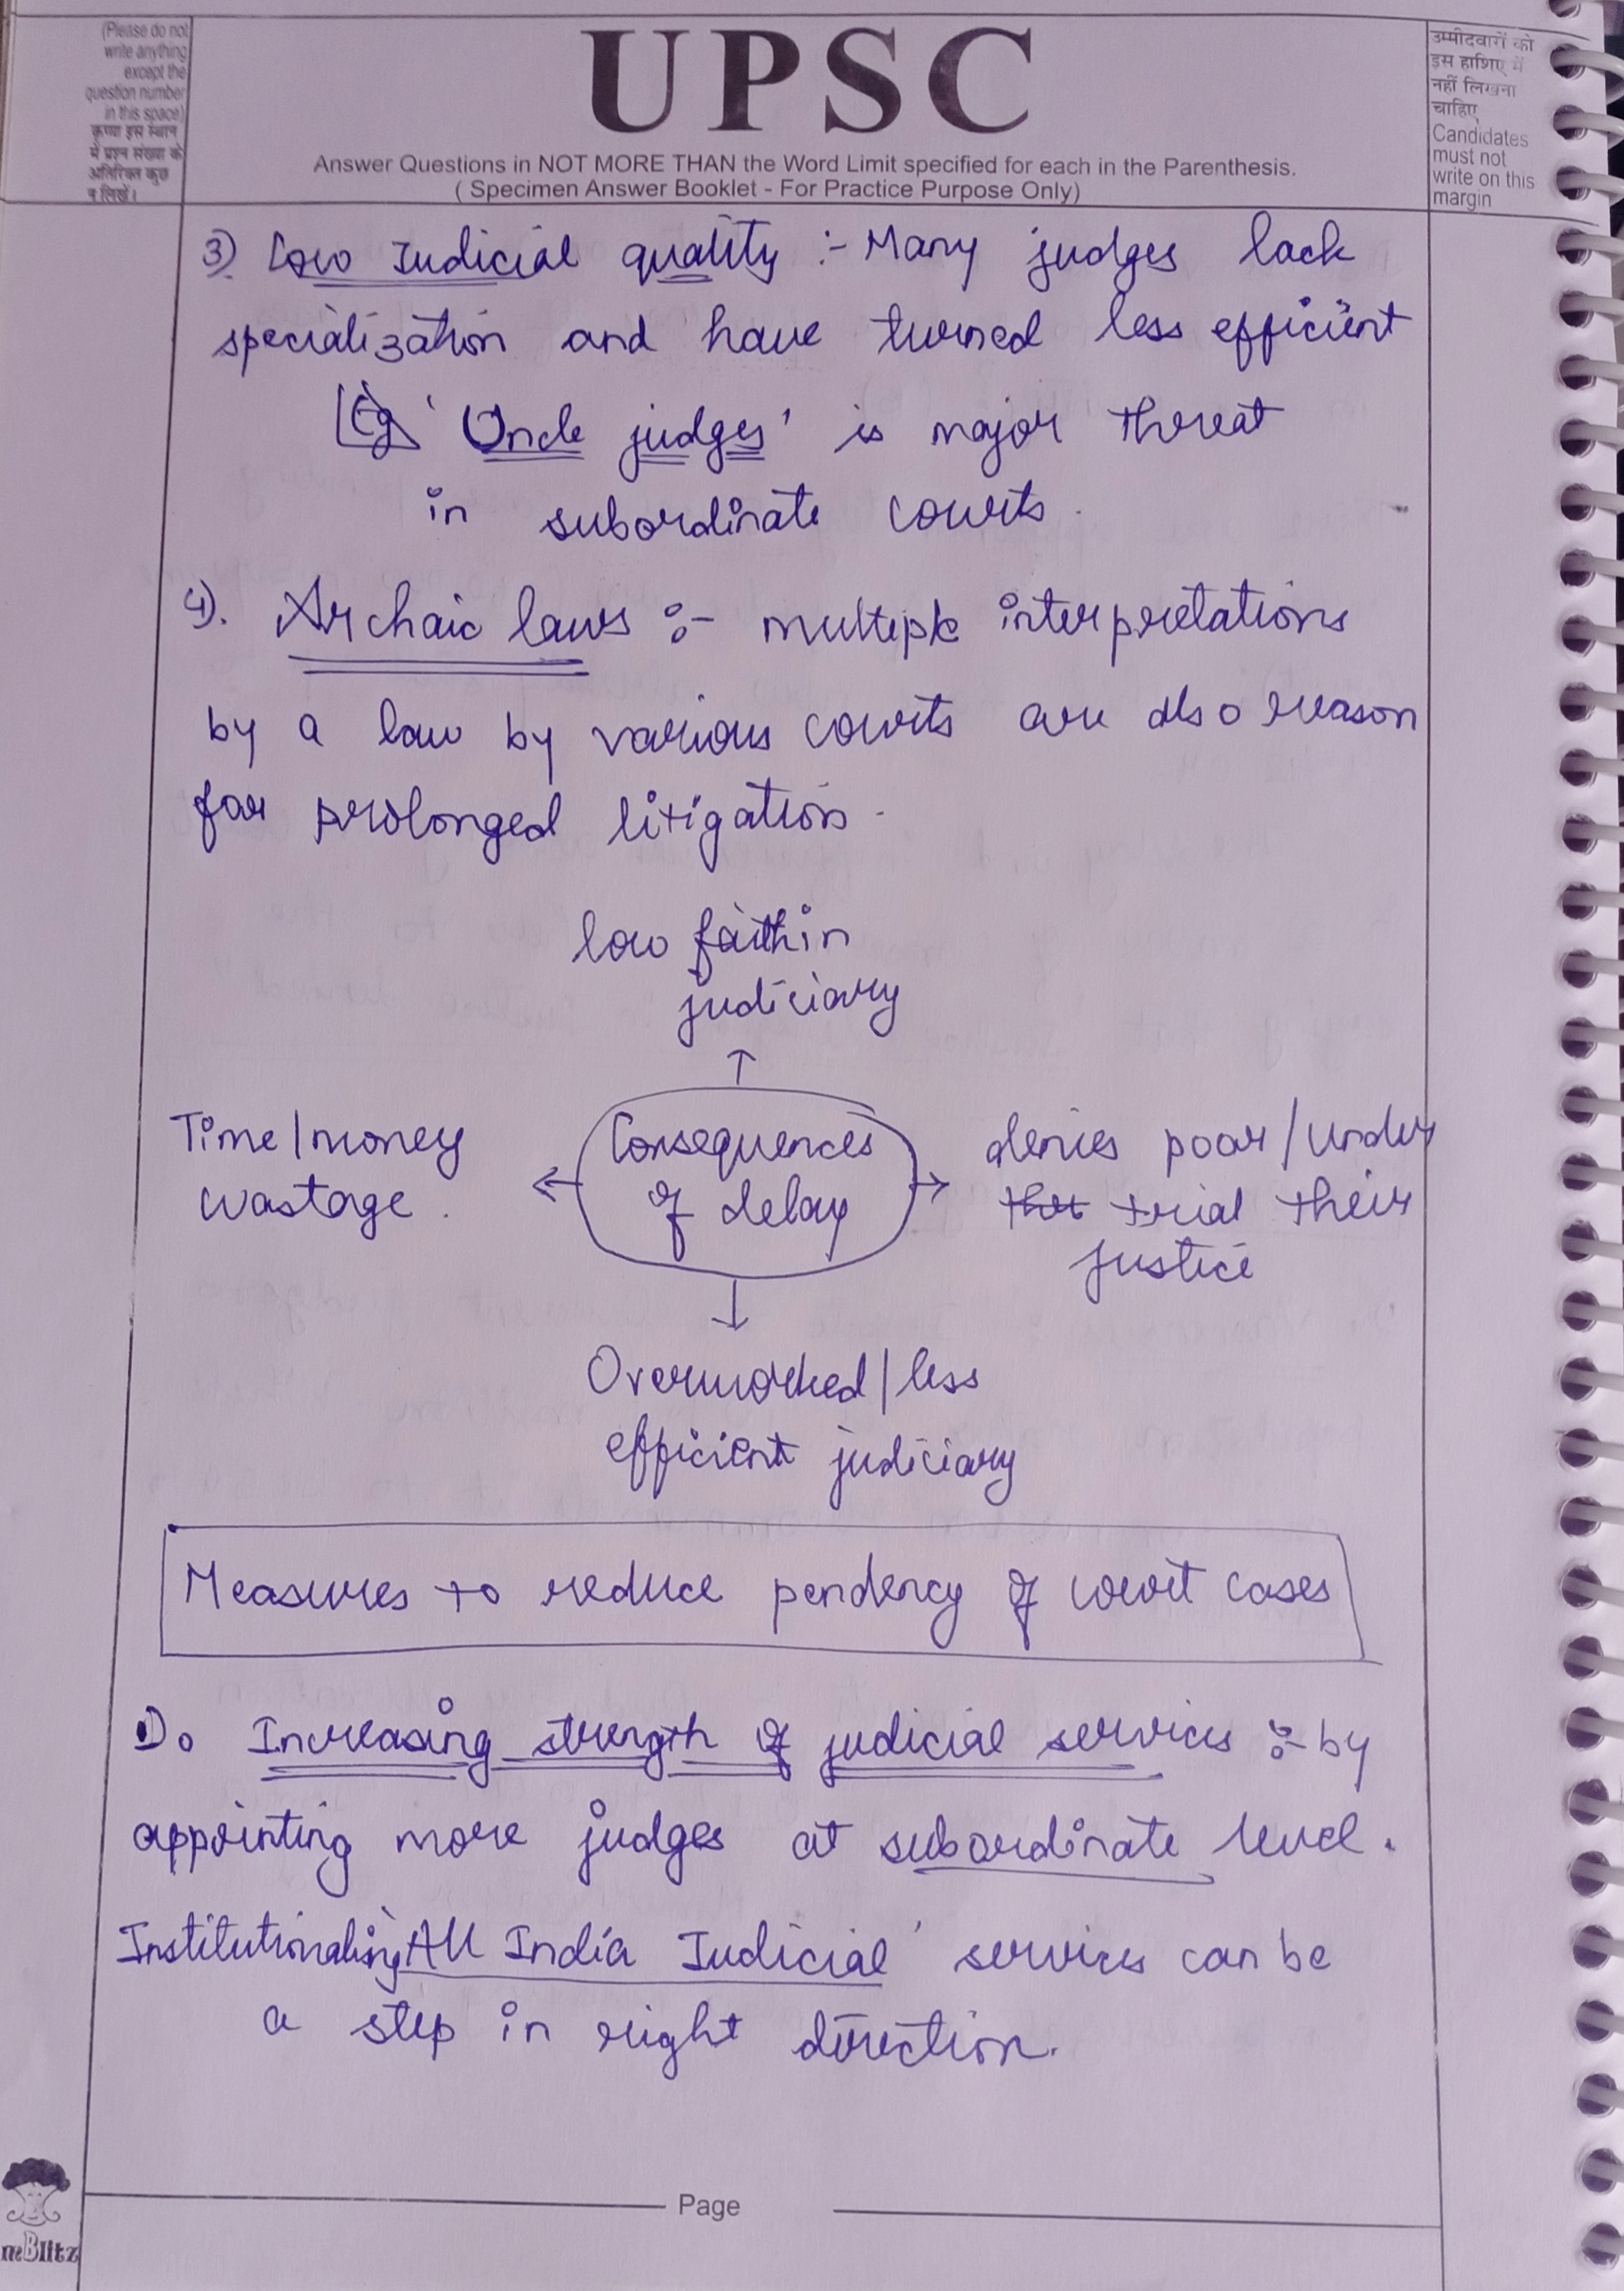 (Please do not
write anything
except the
question number
in this space)
कृपया इस स्थान
में प्रश्न संख्या के
अतिरिक्त कुछ
न लिखें।
UPSC
Answer Questions in NOT MORE THAN the Word Limit specified for each in the Parenthesis.
( Specimen Answer Booklet - For Practice Purpose Only)
उम्मीदवारों को
इस हाशिए में
नहीं लिखना
चाहिए
Candidates
must not
write on this
margin
3) Low Judicial quality :- Many judges lack
specialization and have turned less efficient
Eg 'Uncle judges' is major threat
in subordinate courts.
4). Archaic laws :- multiple interpretations
by a law by various courts are also reason
for prolonged litigation.
low faith in
judiciary
↑
Time/money
wastage.
← Consequences
of delay →
denies poor/under
trial their
justice
↓
Overworked/less
efficient judiciary
Measures to reduce pendency of court cases
1). Increasing strength of judicial services :- by
appointing more judges at subordinate level.
Institutionalising 'All India Judicial' services can be
a step in right direction.
Page
mBlitz